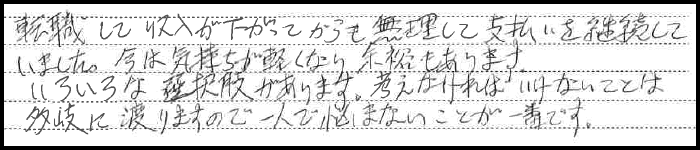 転職して収入が下がってからも無理して支払いを継続して
いました。今は気持ちが軽くなり、余裕もあります。
いろいろな選択肢があります。考えなければいけないことは
多岐に渡りますので一人で悩まないことが一番です。